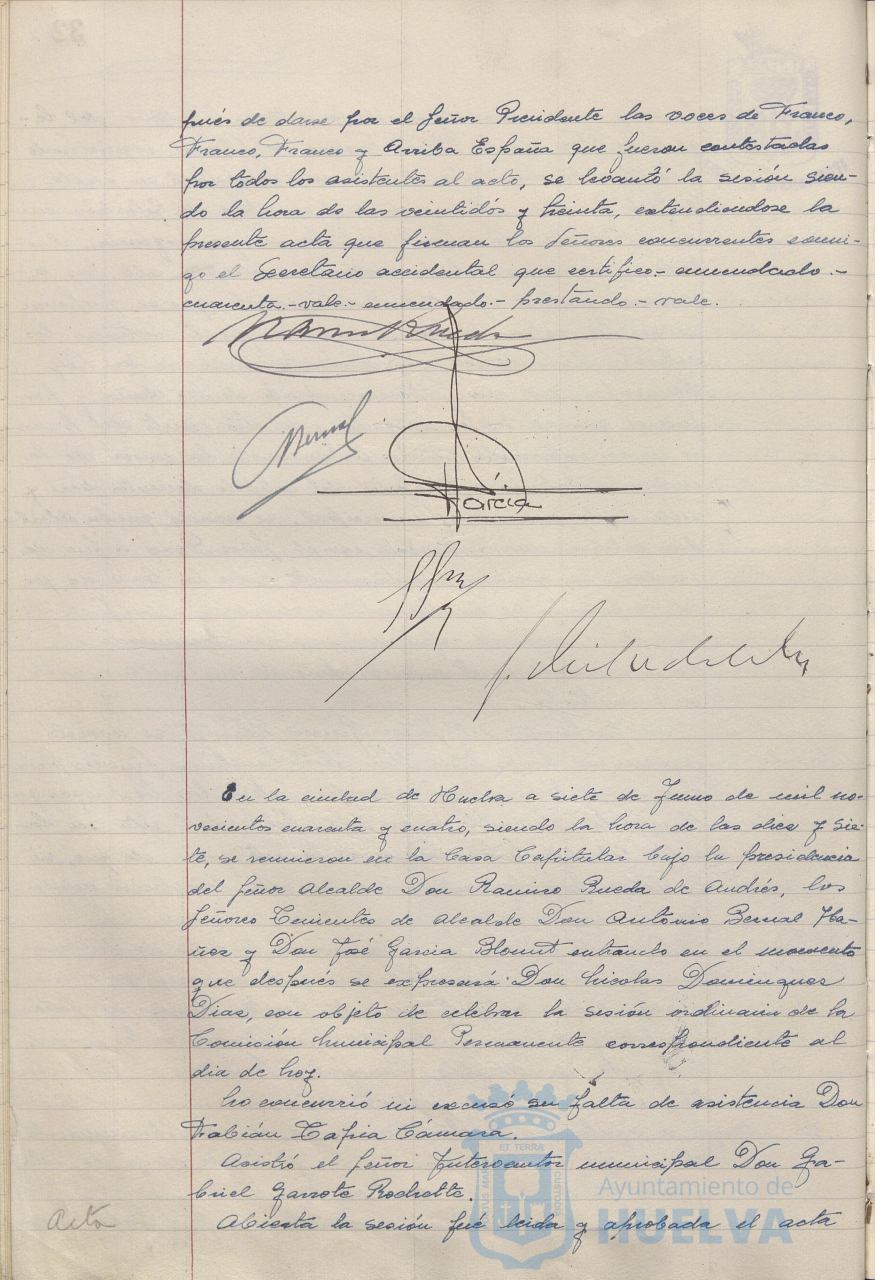 pués de darse por el Señor Presidente las voces de Franco,
Franco, Franco y Arriba España que fueron contestadas
por todos los asistentes al acto, se levantó la sesión sien-
do la hora de las veintidós y treinta, extendiendose la
presente acta que firman los Señores concurrentes conmi-
go el Secretario accidental que certifico.- enmendado.-
cuarenta.- vale.- enmendado.- prestando.- vale.
Bernal
García
En la ciudad de Huelva a siete de Junio de mil no-
vecientos cuarenta y cuatro, siendo la hora de las diez y sie-
te, se reunieron en la Casa Capitular bajo la presidencia
del Señor Alcalde Don Ramiro Rueda de Andrés, los
Señores Tenientes de Alcalde Don Antonio Bernal Iba-
ñez y Don José Garcia Blount entrando en el momento
que después se expresará Don Nicolas Dominguez
Diaz, con objeto de celebrar la sesión ordinaria de la
Comisión Municipal Permanente correspondiente al
dia de hoy.
No concurrió ni excusó su falta de asistencia Don
Fabián Tapia Cámara.
Asistió el Señor Interventor municipal Don Ga-
briel Garrote
Acta
Abierta la sesión fué leida y aprobada el acta
ET TERRA
Ayuntamiento de
HUELVA